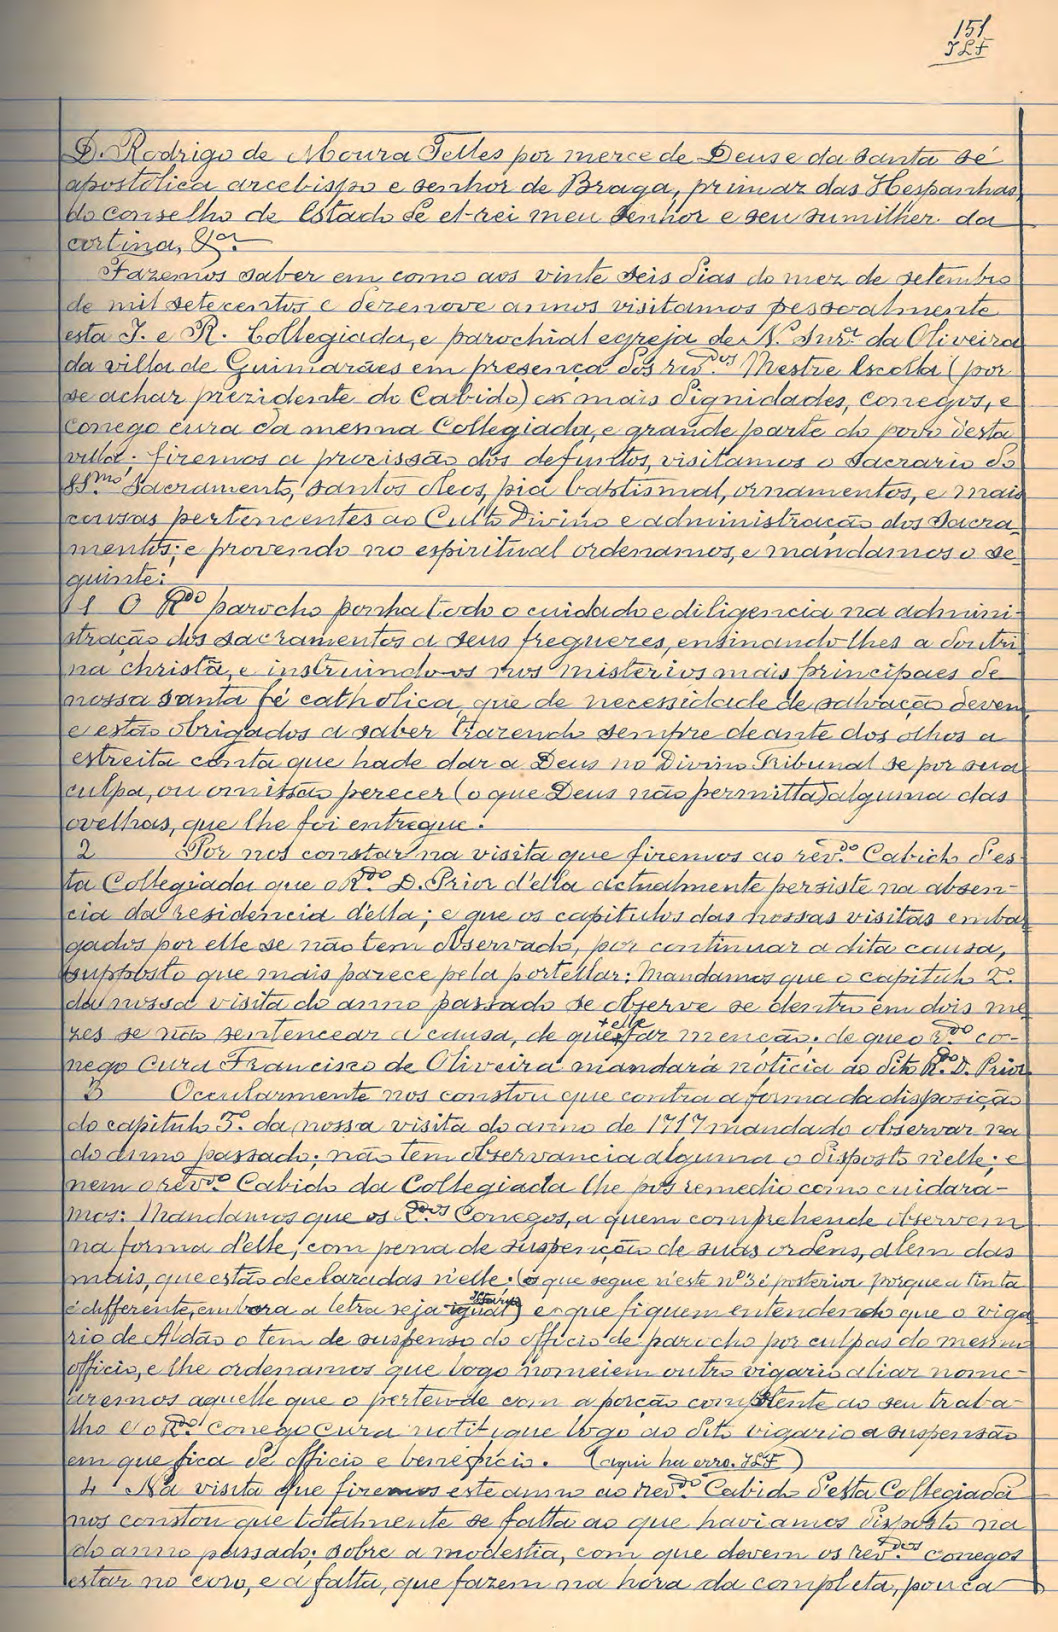 151
JLF
D. Rodrigo de Moura Telles por merce de Deus e da santa sé
apostolica arcebispo e senhor de Braga, primaz das Hespanhas,
do conselho de Estado de el-rei meu senhor e seu sumilher da
cortina, &ª.
Fazemos saber em como aos vinte seis dias do mez de setembro
de mil setecentos e dezenove annos visitamos pessoalmente
esta I. e R. Collegiada, e parochial egreja de N. Snrª. da Oliveira
da villa de Guimarães em presença dos revdos. Mestre Escolla (por
se achar prezidente do Cabido) e mais dignidades, conegos, e
conego cura da mesma Collegiada, e grande parte do povo d'esta
villa; fizemos a procissão dos defuntos, visitamos o sacrario do
SSmo. Sacramento, santos oleos, pia babtismal, ornamentos, e mais
cousas pertencentes ao Culto Divino e administração dos Sacra-
mentos; e provendo no espiritual ordenamos, e mandamos o se-
guinte:
1 O Rdo parocho ponha todo o cuidado e diligencia na admini-
stração dos sacramentos a seus freguezes, ensinando-lhes a doutri-
na christã, e instruindo-os nos misterios mais principaes de
nossa santa fé catholica, que de necessidade de salvação devem,
e estão obrigados a saber trazendo sempre deante dos olhos a
estreita conta que hade dar a Deus no Divino Tribunal se por sua
culpa, ou omissão perecer (o que Deus não permitta) alguma das
ovelhas, que lhe foi entregue.
2 Por nos constar na visita que fizemos ao revdo. Cabido d'es-
ta Collegiada que o Rdo. D. Prior d'ella actualmente persiste na absen-
cia da residencia d'ella; e que os capitulos das nossas visitas emba-
gados por elle se não tem observado, por continuar a dita causa,
supposto que mais parece pela portellar: Mandamos que o capitulo 2º.
da nossa visita do anno passado se observe se dentro em dois me-
zes se não sentencear a causa, de que +elle faz menção; de que o rdo. co-
nego Cura Francisco de Oliveira mandará noticia ao dito Rdo. D. Prior
3 Occularmente nos constou que contra a forma da disposição
do capitulo 5º. da nossa visita do anno de 1717 mandado observar na
do anno passado; não tem observancia alguma o disposto n'elle; e
nem o revdo. Cabido da Collegiada lhe pos remedio como cuidara-
mos: Mandamos que os Rdos. Conegos, a quem comprehende observem
na forma d'elle, com pena de suspenção de suas ordens, alem das
mais, que estão declaradas n'elle. (o que segue n'este nº 3 é posterior porque a tinta
é differente, embora a letra seja igual) e que fiquem entendendo que o viga-
rio de Aldão o tem de suspenso do officio de parocho por culpas do mesmo
officio, e lhe ordenamos que logo nomeiem outro vigario aliar nome-
aremos aquelle que o pertende com a porção competente ao seu traba-
lho e o Rdo. conego cura notifique logo ao dito vigario a suspensão
em que fica de officio e beneficio. (aqui ha erro. JLF)
4 Na visita que fizemos este anno ao revdo. Cabido d'esta Collegiada
nos constou que totalmente se falta ao que haviamos disposto na
do anno passado; sobre a modestia, com que devem os revdos. conegos
estar no coro, e a falta, que fazem na hora da completa, pouca